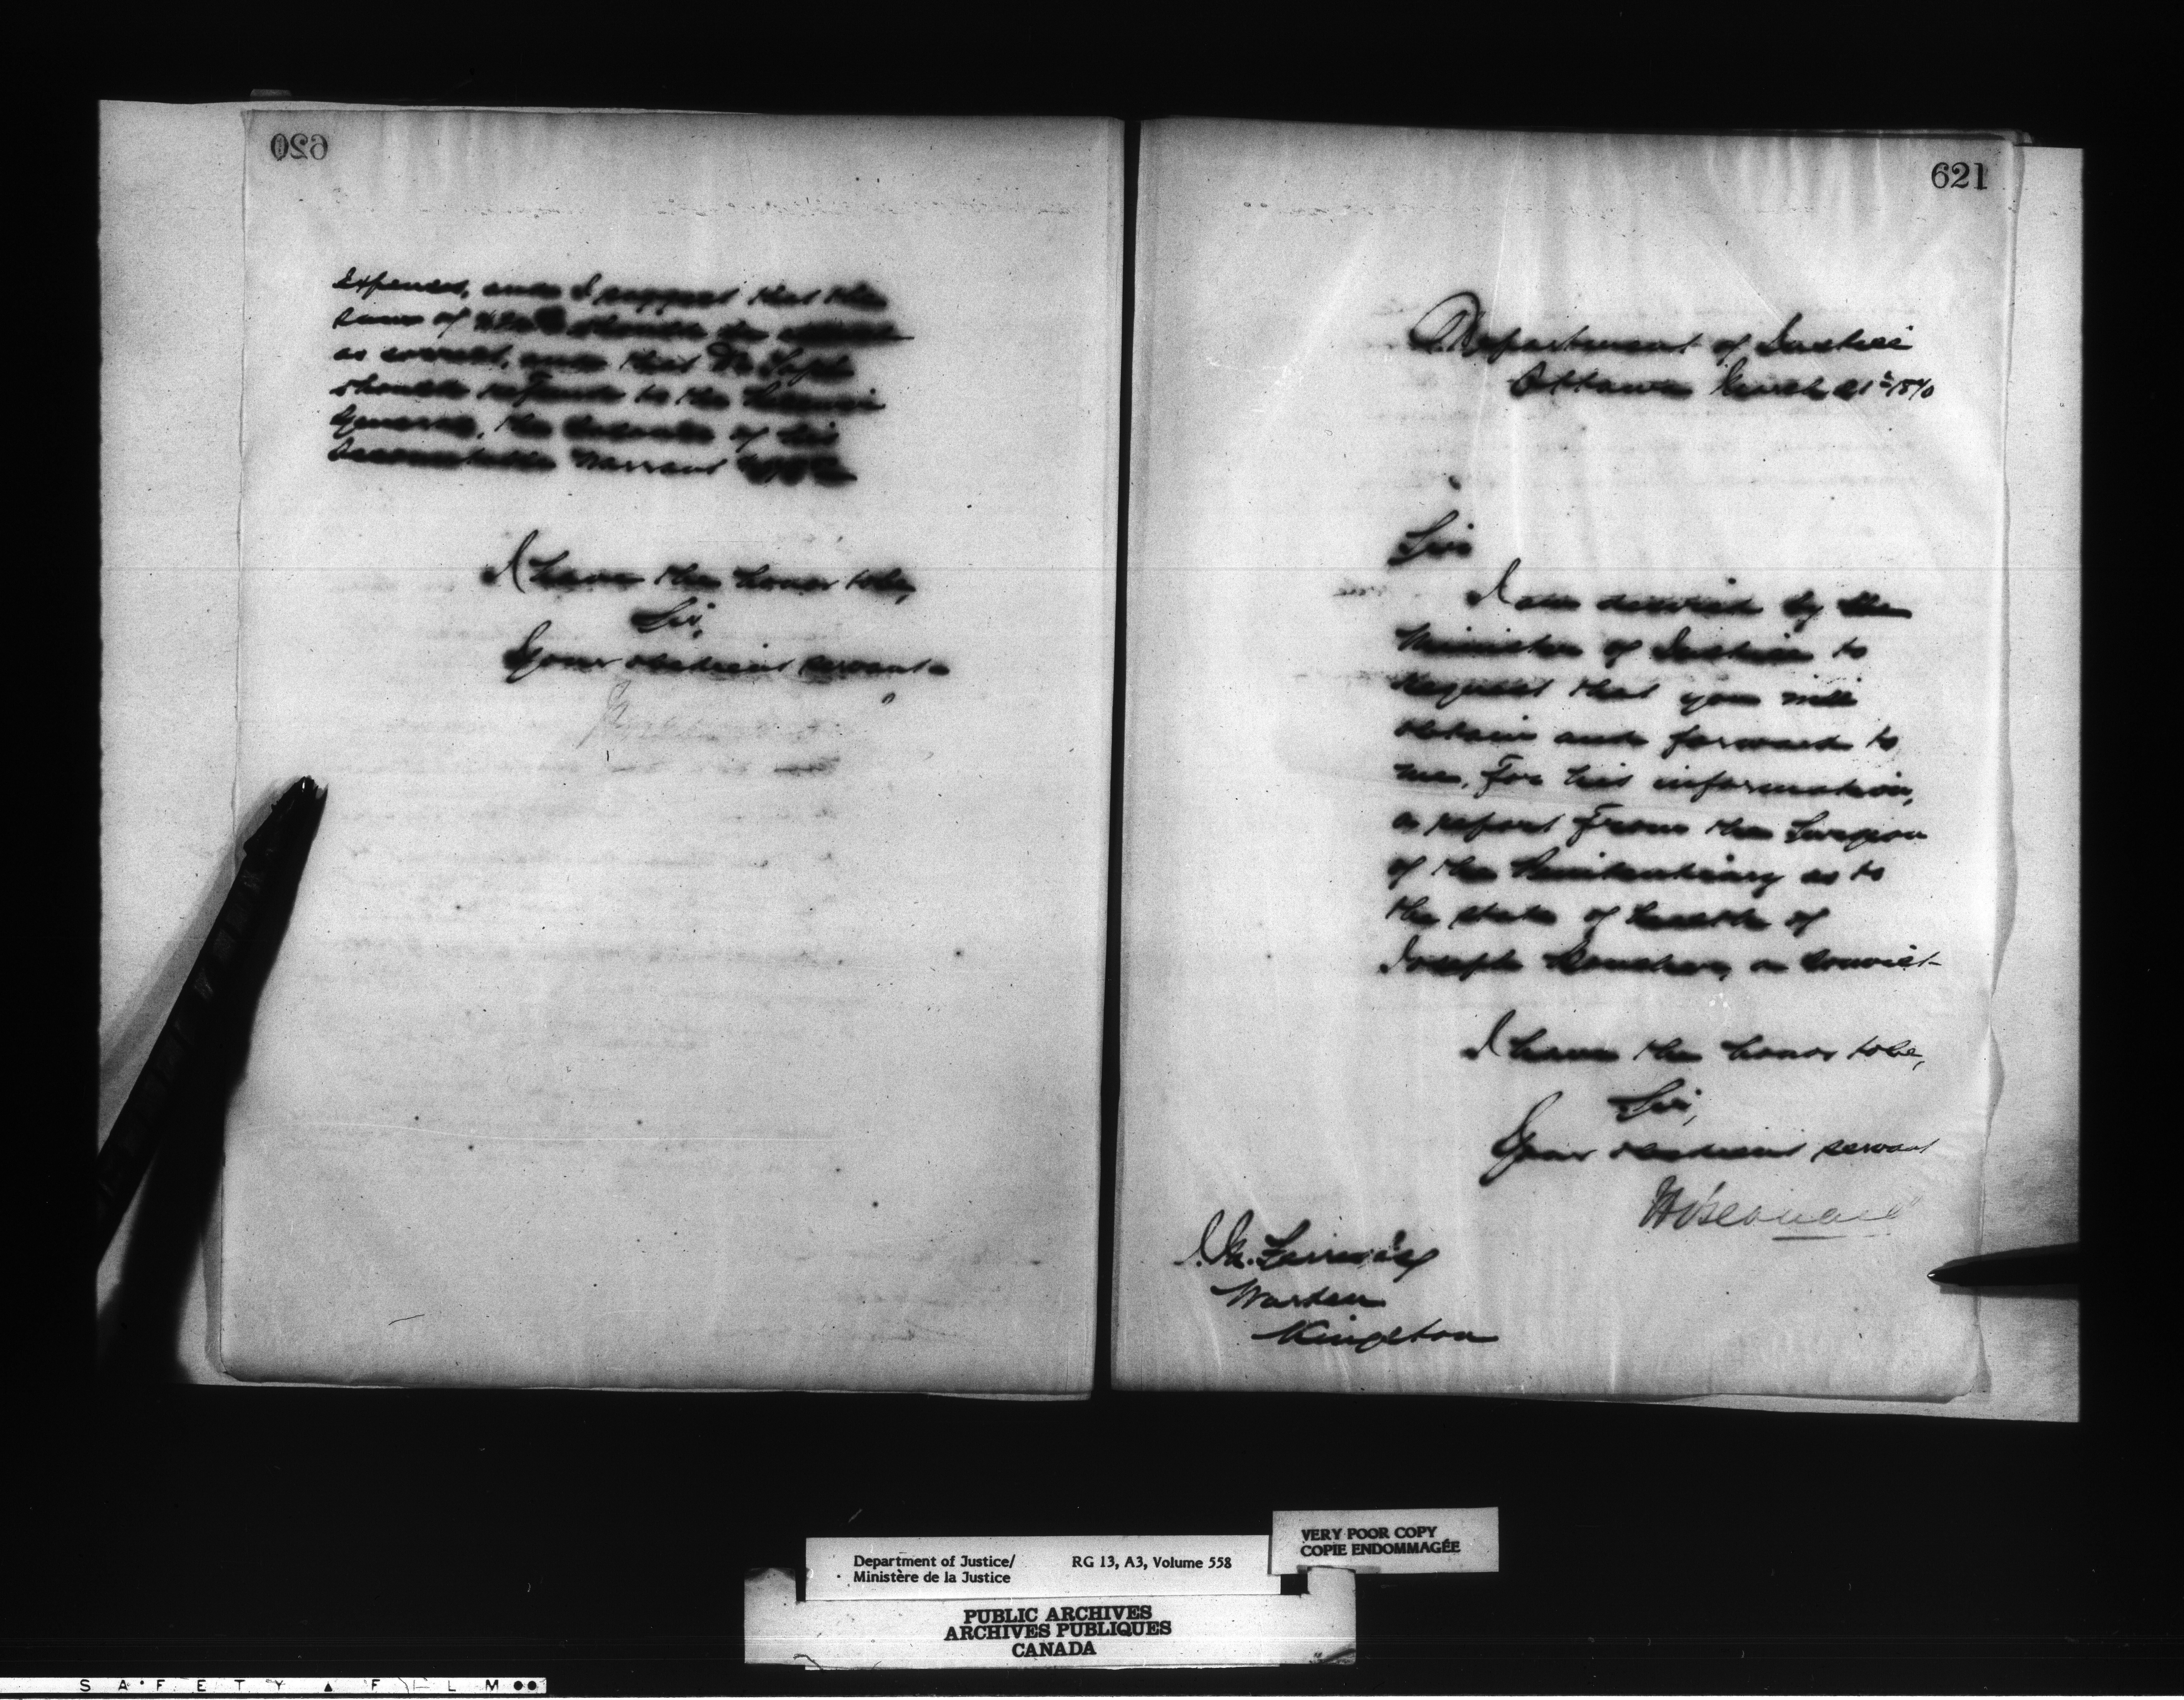 620
Expenses, and I suggest that the
sum of should be
as correct, and that Mr
should refund to the Receiver
General, the balance of his
Accountable Warrant
I have the honor to be,
Sir,
Your obedient servant
621
Department of Justice
Ottawa March 21st 1870
Sir
I am desired by the
Minister of Justice to
request that you will
obtain and forward to
me, for his information,
a report from the Surgeon
of the Penitentiary as to
the state of health of
Joseph a convict
I have the honor to be,
Sir,
Your obedient servant
J. M. Ferres Esq
Warden
Kingston
Department of Justice/
Ministère de la Justice
RG 13, A3, Volume 558
VERY POOR COPY
COPIE ENDOMMAGÉE
PUBLIC ARCHIVES
ARCHIVES PUBLIQUES
CANADA
SAFETY FILM